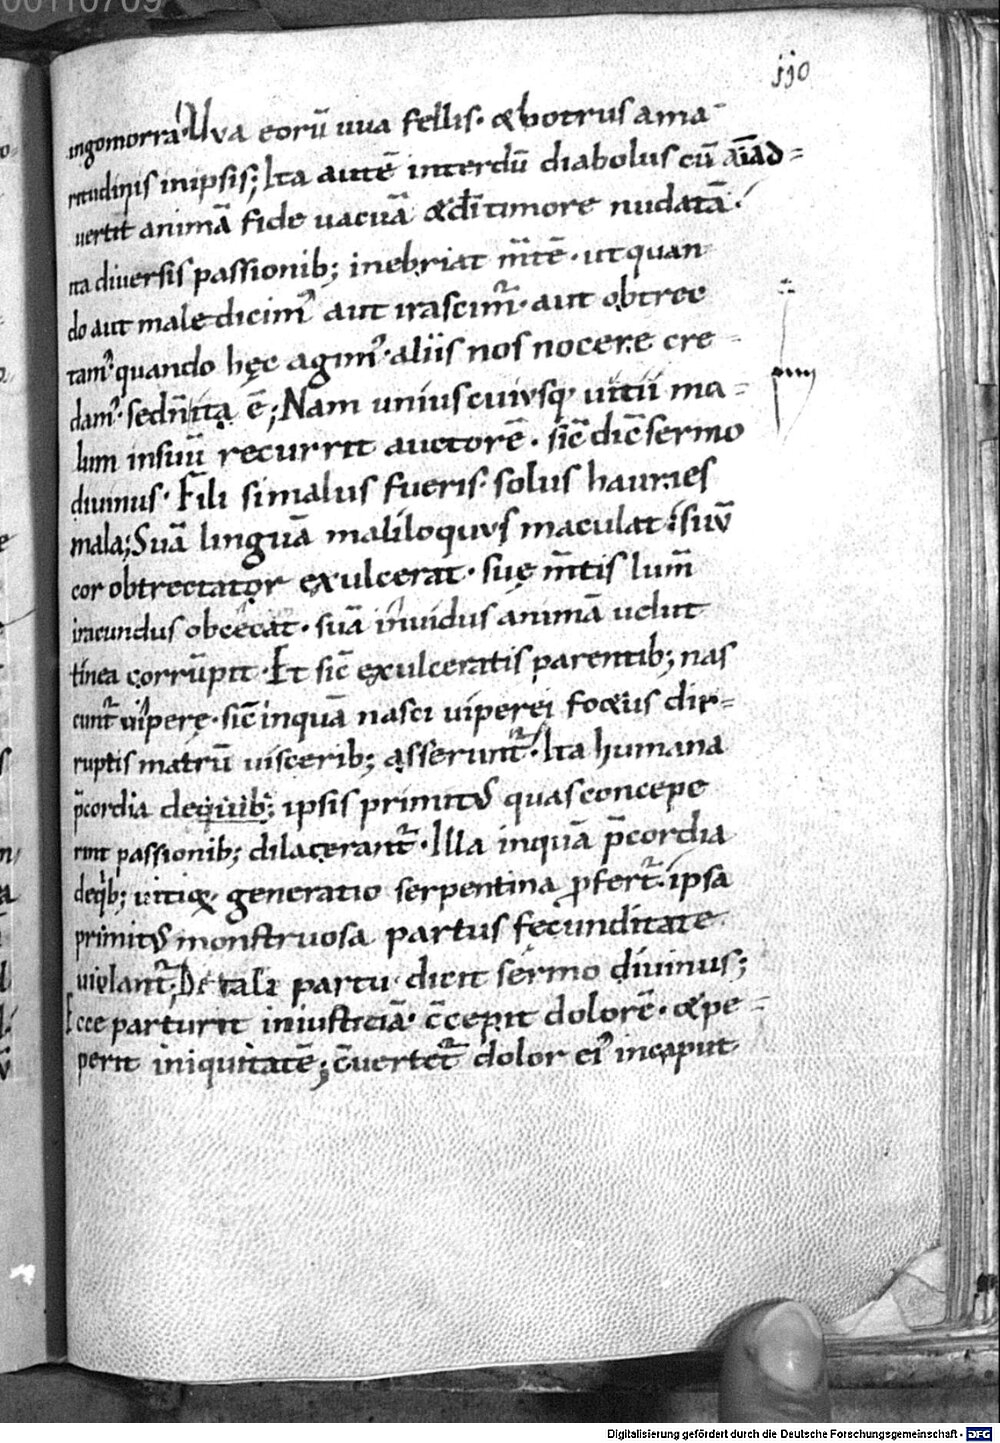 00110709
110
ingomorra. Uva eorū uua fellis. & botrus ama
ritudinis in ipsis; Ita autē interdū diabolus cū aīad
uertit animā fide uacuā & dī timore nudatā.
ita diuersis passionib; inebriat m̄tē. ut quan
do aut male dicim᾽ aut irascimr̄. aut obtrec
tam᾽ quando hęc agim᾽. aliis nos nocere cre
dam᾽. sed n̄ ita ē; Nam uniuscuiusq; uitii ma
lum in suū recurrit auctorē. sic̄ dic̄ sermo
diuinus. Fili si malus fueris. solus hauries
mala; Suā linguā maliloquus maculat. suū
cor obtrectator exulcerat. suę m̄tis lum̄
iracundus obcęcat. suā inuidus animā uelut
tinea corrūpit. Et sic̄ exulceratis parentib; nas
cuntr̄ uiperę. sic̄ inquā nasci uiperei foetus dir
ruptis matrū uiscerib; asseruntr̄. Ita humana
p̄cordia de quib; ipsis primitus quas concepe
rint passionib; dilacerantr̄. Illa inquā p̄cordia
de qb; uitioꝝ generatio serpentina ꝓfertr̄. ipsa
primitus monstruosa partus fęcunditate
uiolantr̄. De tali partu dicit sermo diuinus;
Ecce parturit iniusticiā. c̄cepit dolorē. & pe
perit iniquitatē; c̄uertetr̄ dolor ei᾽ in caput
Digitalisierung gefördert durch die Deutsche Forschungsgemeinschaft - DFG